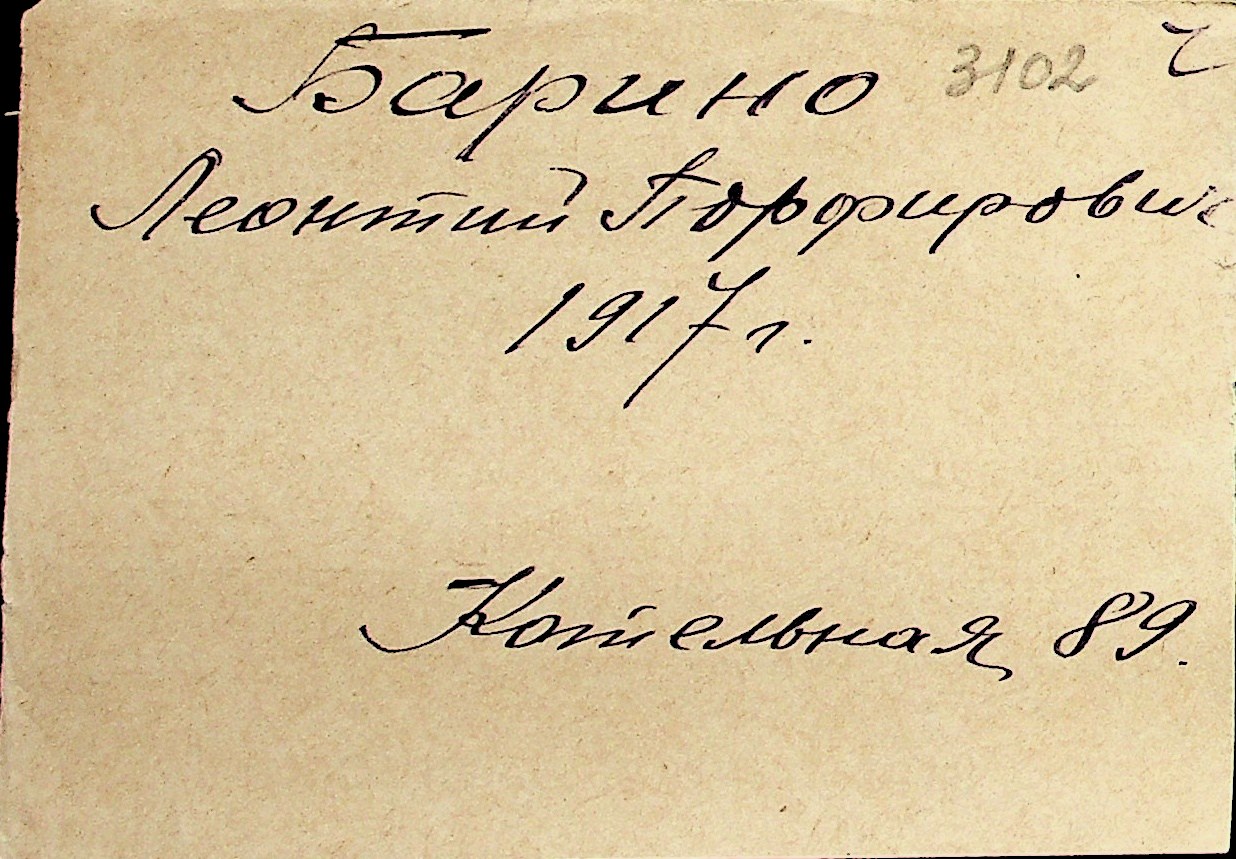 Барино 3102
Леонтий Порфирович
1917 г.
Котельная 89.